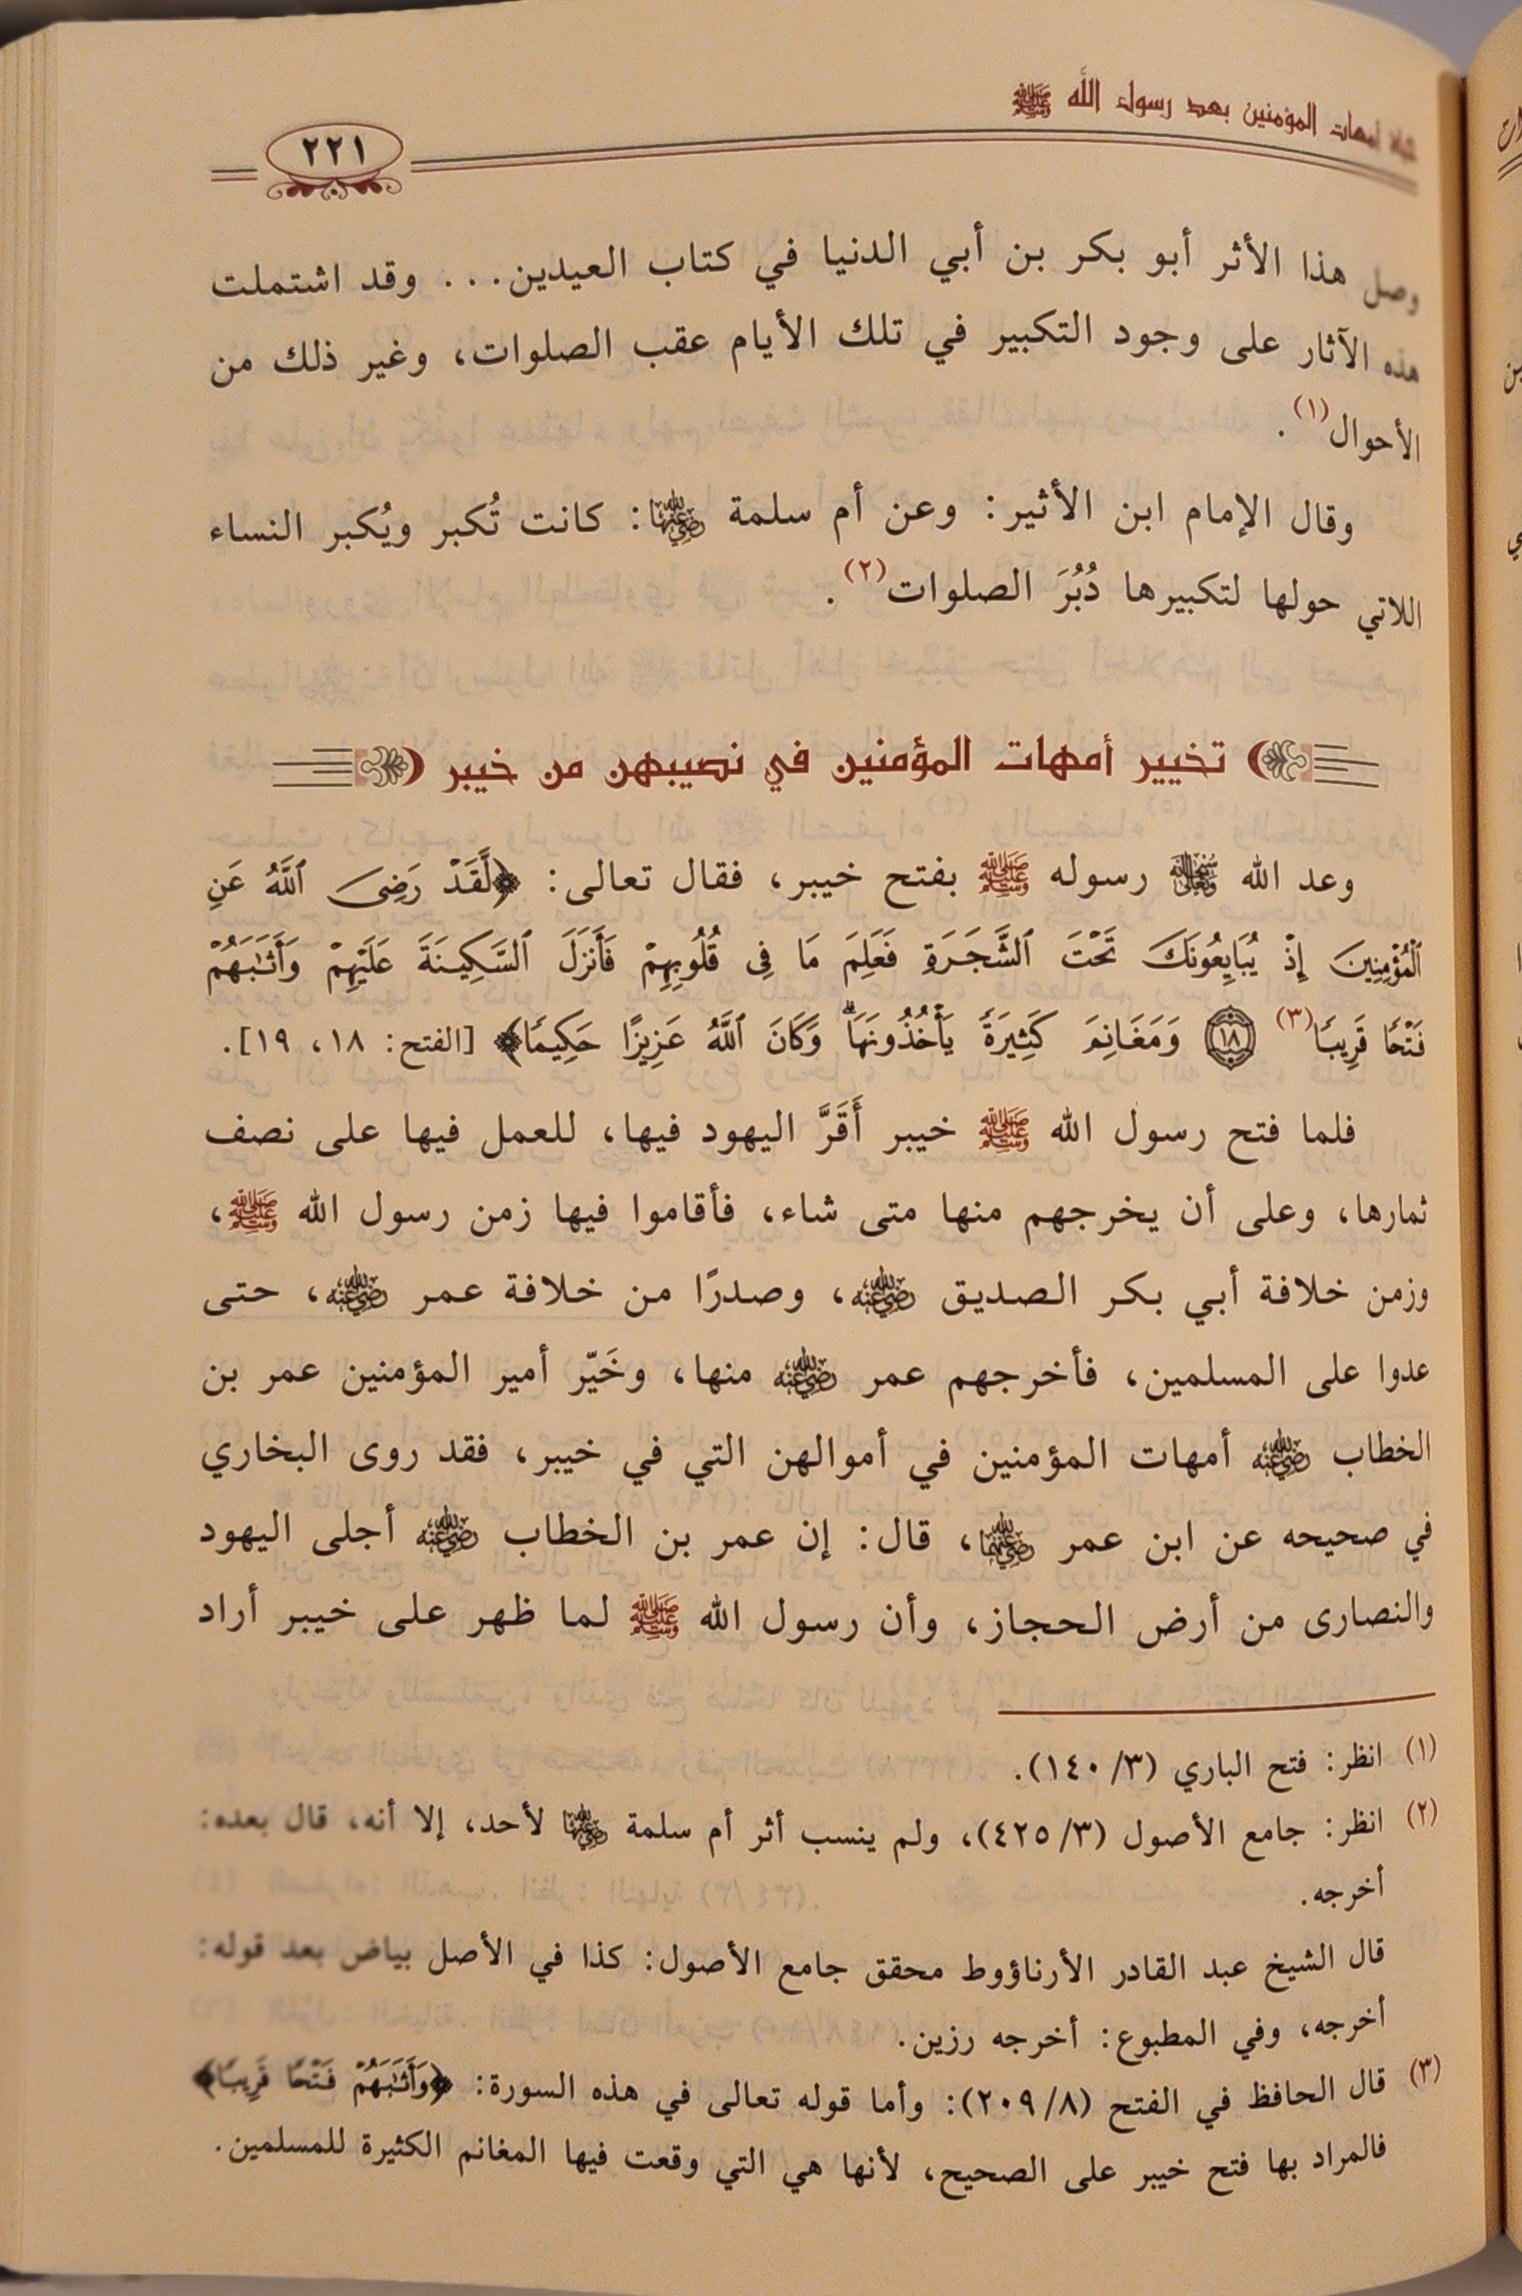 أمهات المؤمنين بعد رسول الله ﷺ
٢٢١
وصل هذا الأثر أبو بكر بن أبي الدنيا في كتاب العيدين... وقد اشتملت
هذه الآثار على وجود التكبير في تلك الأيام عقب الصلوات، وغير ذلك من
الأحوال(١).
وقال الإمام ابن الأثير: وعن أم سلمة رضي الله عنها: كانت تُكبر ويُكبر النساء
اللاتي حولها لتكبيرها دُبُرَ الصلوات(٢).
تخيير أمهات المؤمنين في نصيبهن من خيبر
وعد الله سبحانه وتعالى رسوله ﷺ بفتح خيبر، فقال تعالى: ﴿لَّقَدْ رَضِىَ ٱللَّهُ عَنِ
ٱلْمُؤْمِنِينَ إِذْ يُبَايِعُونَكَ تَحْتَ ٱلشَّجَرَةِ فَعَلِمَ مَا فِى قُلُوبِهِمْ فَأَنزَلَ ٱلسَّكِينَةَ عَلَيْهِمْ وَأَثَٰبَهُمْ
فَتْحًا قَرِيبًا(٣) ١٨ وَمَغَانِمَ كَثِيرَةً يَأْخُذُونَهَا ۗ وَكَانَ ٱللَّهُ عَزِيزًا حَكِيمًا﴾ [الفتح: ١٨، ١٩].
فلما فتح رسول الله ﷺ خيبر أَقَرَّ اليهود فيها، للعمل فيها على نصف
ثمارها، وعلى أن يخرجهم منها متى شاء، فأقاموا فيها زمن رسول الله ﷺ،
وزمن خلافة أبي بكر الصديق رضي الله عنه، وصدرًا من خلافة عمر رضي الله عنه، حتى
عدوا على المسلمين، فأخرجهم عمر رضي الله عنه منها، وخَيّر أمير المؤمنين عمر بن
الخطاب رضي الله عنه أمهات المؤمنين في أموالهن التي في خيبر، فقد روى البخاري
في صحيحه عن ابن عمر رضي الله عنهما، قال: إن عمر بن الخطاب رضي الله عنه أجلى اليهود
والنصارى من أرض الحجاز، وأن رسول الله ﷺ لما ظهر على خيبر أراد
(١) انظر: فتح الباري (٣/ ١٤٠).
(٢) انظر: جامع الأصول (٣/ ٤٢٥)، ولم ينسب أثر أم سلمة رضي الله عنها لأحد، إلا أنه، قال بعده:
أخرجه.
قال الشيخ عبد القادر الأرناؤوط محقق جامع الأصول: كذا في الأصل بياض بعد قوله:
أخرجه، وفي المطبوع: أخرجه رزين.
(٣) قال الحافظ في الفتح (٨/ ٢٠٩): وأما قوله تعالى في هذه السورة: ﴿وَأَثَٰبَهُمْ فَتْحًا قَرِيبًا﴾
فالمراد بها فتح خيبر على الصحيح، لأنها هي التي وقعت فيها المغانم الكثيرة للمسلمين.